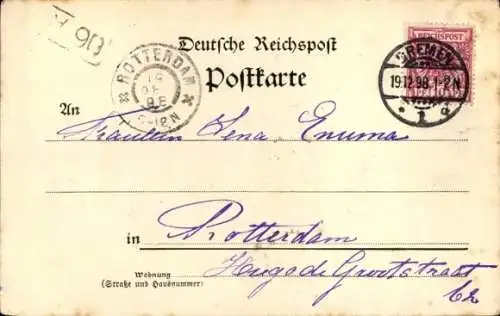 90
Deutsche Reichspost
Postkarte
REICHSPOST
BREMEN
19.12.98. 1-2 N
* 1 d
ROTTERDAM
An
Fräulein Lena Enuma
in Rotterdam
Wohnung
(Straße und Hausnummer)
Hugo de Grootstraat
62